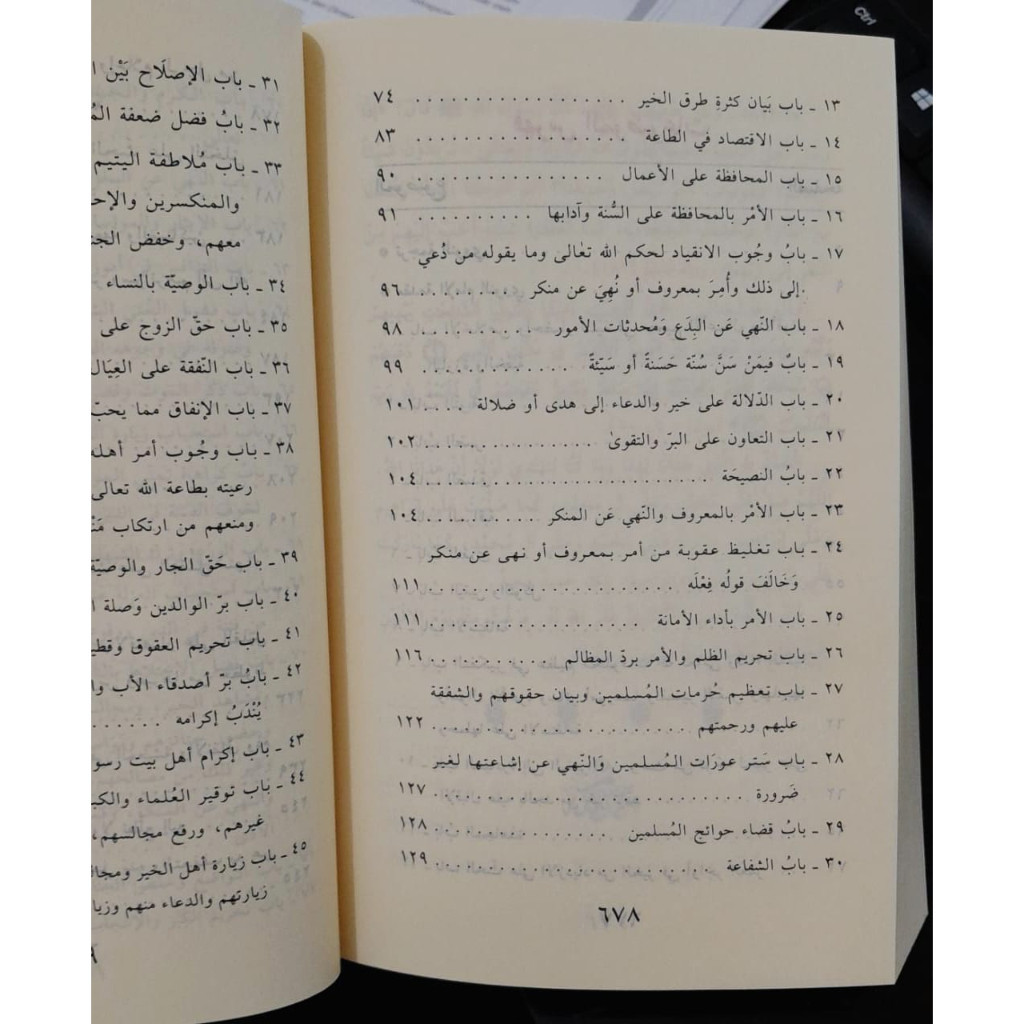 ١٣ ـ باب بَيان كثرةِ طرق الخير .................. ٧٤
١٤ ـ باب الاقتصاد في الطاعة .................. ٨٣
١٥ ـ باب المحافظة على الأعمال ................ ٩٠
١٦ ـ باب الأمْر بالمحافظة على السُّنة وآدابها .......... ٩١
١٧ ـ بابُ وجُوب الانقياد لحكم الله تعالى وما يقوله من دُعي
إلى ذلك وأُمِرَ بمعروف أو نُهِيَ عن منكر ........ ٩٦
١٨ ـ باب النّهي عَن البِدَع وَمُحدثات الأمور .......... ٩٨
١٩ ـ بابٌ فيمَنْ سَنَّ سُنّة حَسَنةً أو سَيّئةً ............ ٩٩
٢٠ ـ باب الدّلالة على خير والدعاء إلى هدى أو ضلالة .... ١٠١
٢١ ـ باب التعاون على البرّ والتقوىٰ ............... ١٠٢
٢٢ ـ بابُ النصيحَة ......................... ١٠٤
٢٣ ـ بابُ الأمْر بالمعروف والنّهي عَن المنكر .......... ١٠٤
٢٤ ـ باب تغليظ عقوبة من أمر بمعروف أو نهى عن منكر
وَخَالَفَ قولُه فِعْلَه ...................... ١١١
٢٥ ـ باب الأمر بأداء الأمانة ................... ١١١
٢٦ ـ باب تحريم الظلم والأمر بردّ المظالم ........... ١١٦
٢٧ ـ باب تعظيم حُرمات المُسلمين وبيان حقوقهم والشفقة
عليهم ورحمتهم ...................... ١٢٢
٢٨ ـ باب سَتر عورَات المُسلمين وَالنّهي عن إشاعتها لغير
ضَرورة ............................ ١٢٧
٢٩ ـ بابُ قضاء حوائج المُسلمين ................ ١٢٨
٣٠ ـ بابُ الشفاعة ........................ ١٢٩
٦٧٨
٣١ ـ باب الإصلَاح بَيْن
٣٢ ـ بابُ فضل ضعفة
٣٣ ـ باب مُلاطفة اليتيم
والمنكسرين
معهم، وخفض
٣٤ ـ باب الوصيّة بالنساء
٣٥ ـ باب حَقّ الزوج على
٣٦ ـ باب النّفقة على العِيَال
٣٧ ـ باب الإنفاق مما يحبّ
٣٨ ـ باب وجُوب أمر أهله
رعيته بطاعة الله تعالى
ومنعهم من ارتكاب
٣٩ ـ باب حَقّ الجار والوصيّة
٤٠ ـ باب برّ الوالدين وَصلة
٤١ ـ باب تحريم العقوق
٤٢ ـ بابُ برّ أصدقاء الأب
يُنْدَبُ إكرامه ......
٤٣ ـ باب إكرام أهل بيت
٤٤ ـ باب توقير العُلماء
غيرهم، ورفع مجالسهم،
٤٥ ـ باب زيارة أهل الخير
زيارتهم والدعاء منهم
Ctrl